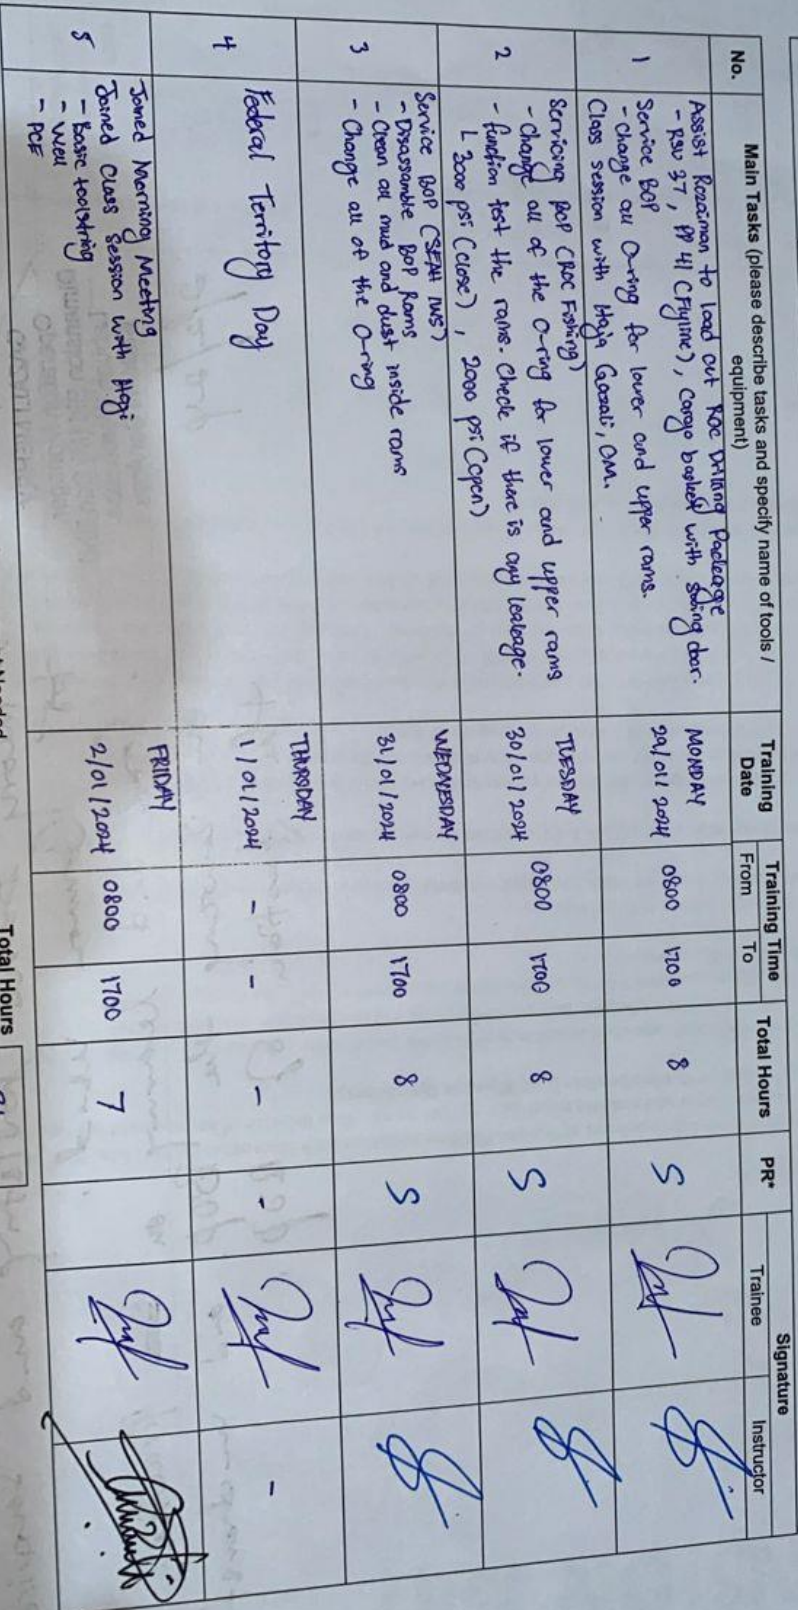 No.
Main Tasks (please describe tasks and specify name of tools /
equipment)
Training
Date
Training Time
From
To
Total Hours
PR*
Signature
Trainee
Instructor
1
Assist Rozaiman to load out Roc Drilling Package
- RSU 37, PP 41 (Flyline), Cargo basket with swing door.
Service BOP
- Change all O-ring for lower and upper rams.
Class session with Haja Gazali, OM.
MONDAY
29/01/2024
0800
1700
8
S
2
Servicing BOP (ROC Fishing)
- Change all of the O-ring for lower and upper rams
- function test the rams. Check if there is any leakage.
L 3000 psi (close), 2000 psi (open)
TUESDAY
30/01/2024
0800
1700
8
S
3
Service BOP (SEAH IWS)
- Disassamble BOP Rams
- Clean all mud and dust inside rams
- Change all of the O-ring
WEDNESDAY
31/01/2024
0800
1700
8
S
4
Federal Territory Day
THURSDAY
1/01/2024
-
-
-
-
-
5
Joined Morning Meeting
Joined Class Session with Hagi
- Basic toolstring
- Well
- PCE
FRIDAY
2/01/2024
0800
1700
7
Needed
Total Hours